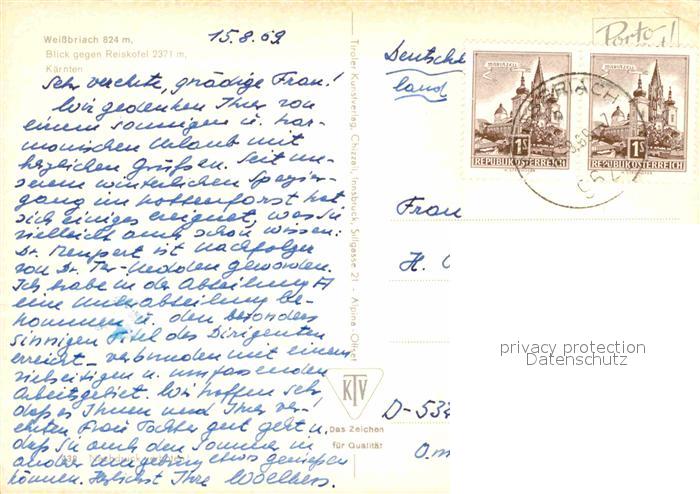 15.8.69
Weißbriach 824 m,
Blick gegen Reiskofel 2371 m,
Kärnten
Sehr verehrte, gnädige Frau!
Wir gedenken Ihrer von
einem sonnigen u. har-
monischen Urlaub mit
herzlichen Grüßen. Seit un-
serem winterlichen Spazier-
gang im Kottenforst hat
sich einiges ereignet, was Sie
vielleicht auch schon wissen:
Dr. Meupert ist Nachfolger
von Dr. Ter-Nedden geworden.
Ich habe in der Abteilung A
eine Unterabteilung be-
kommen u. den besonders
sinnigen Titel des Dirigenten
erreicht – verbunden mit einem
vielseitigen u. umfassenden
Arbeitsgebiet. Wir hoffen sehr,
daß es Ihnen und Ihrer ver-
ehrten Frau Tochter gut geht u.
daß Sie auch den Sommer in
anderer Umgebung etwas genießen
können. Herzlichst Ihre Woelkers.
Tiroler Kunstverlag Chizzali, Innsbruck, Sillgasse 21 - Alpina-Offset
KTV
Das Zeichen
für Qualität
Porto!
Deutsch
land
MARIAZELL
1S
REPUBLIK ÖSTERREICH
MARIAZELL
1S
REPUBLIK ÖSTERREICH
RIACH
Frau
H.
D-53
privacy protection
Datenschutz